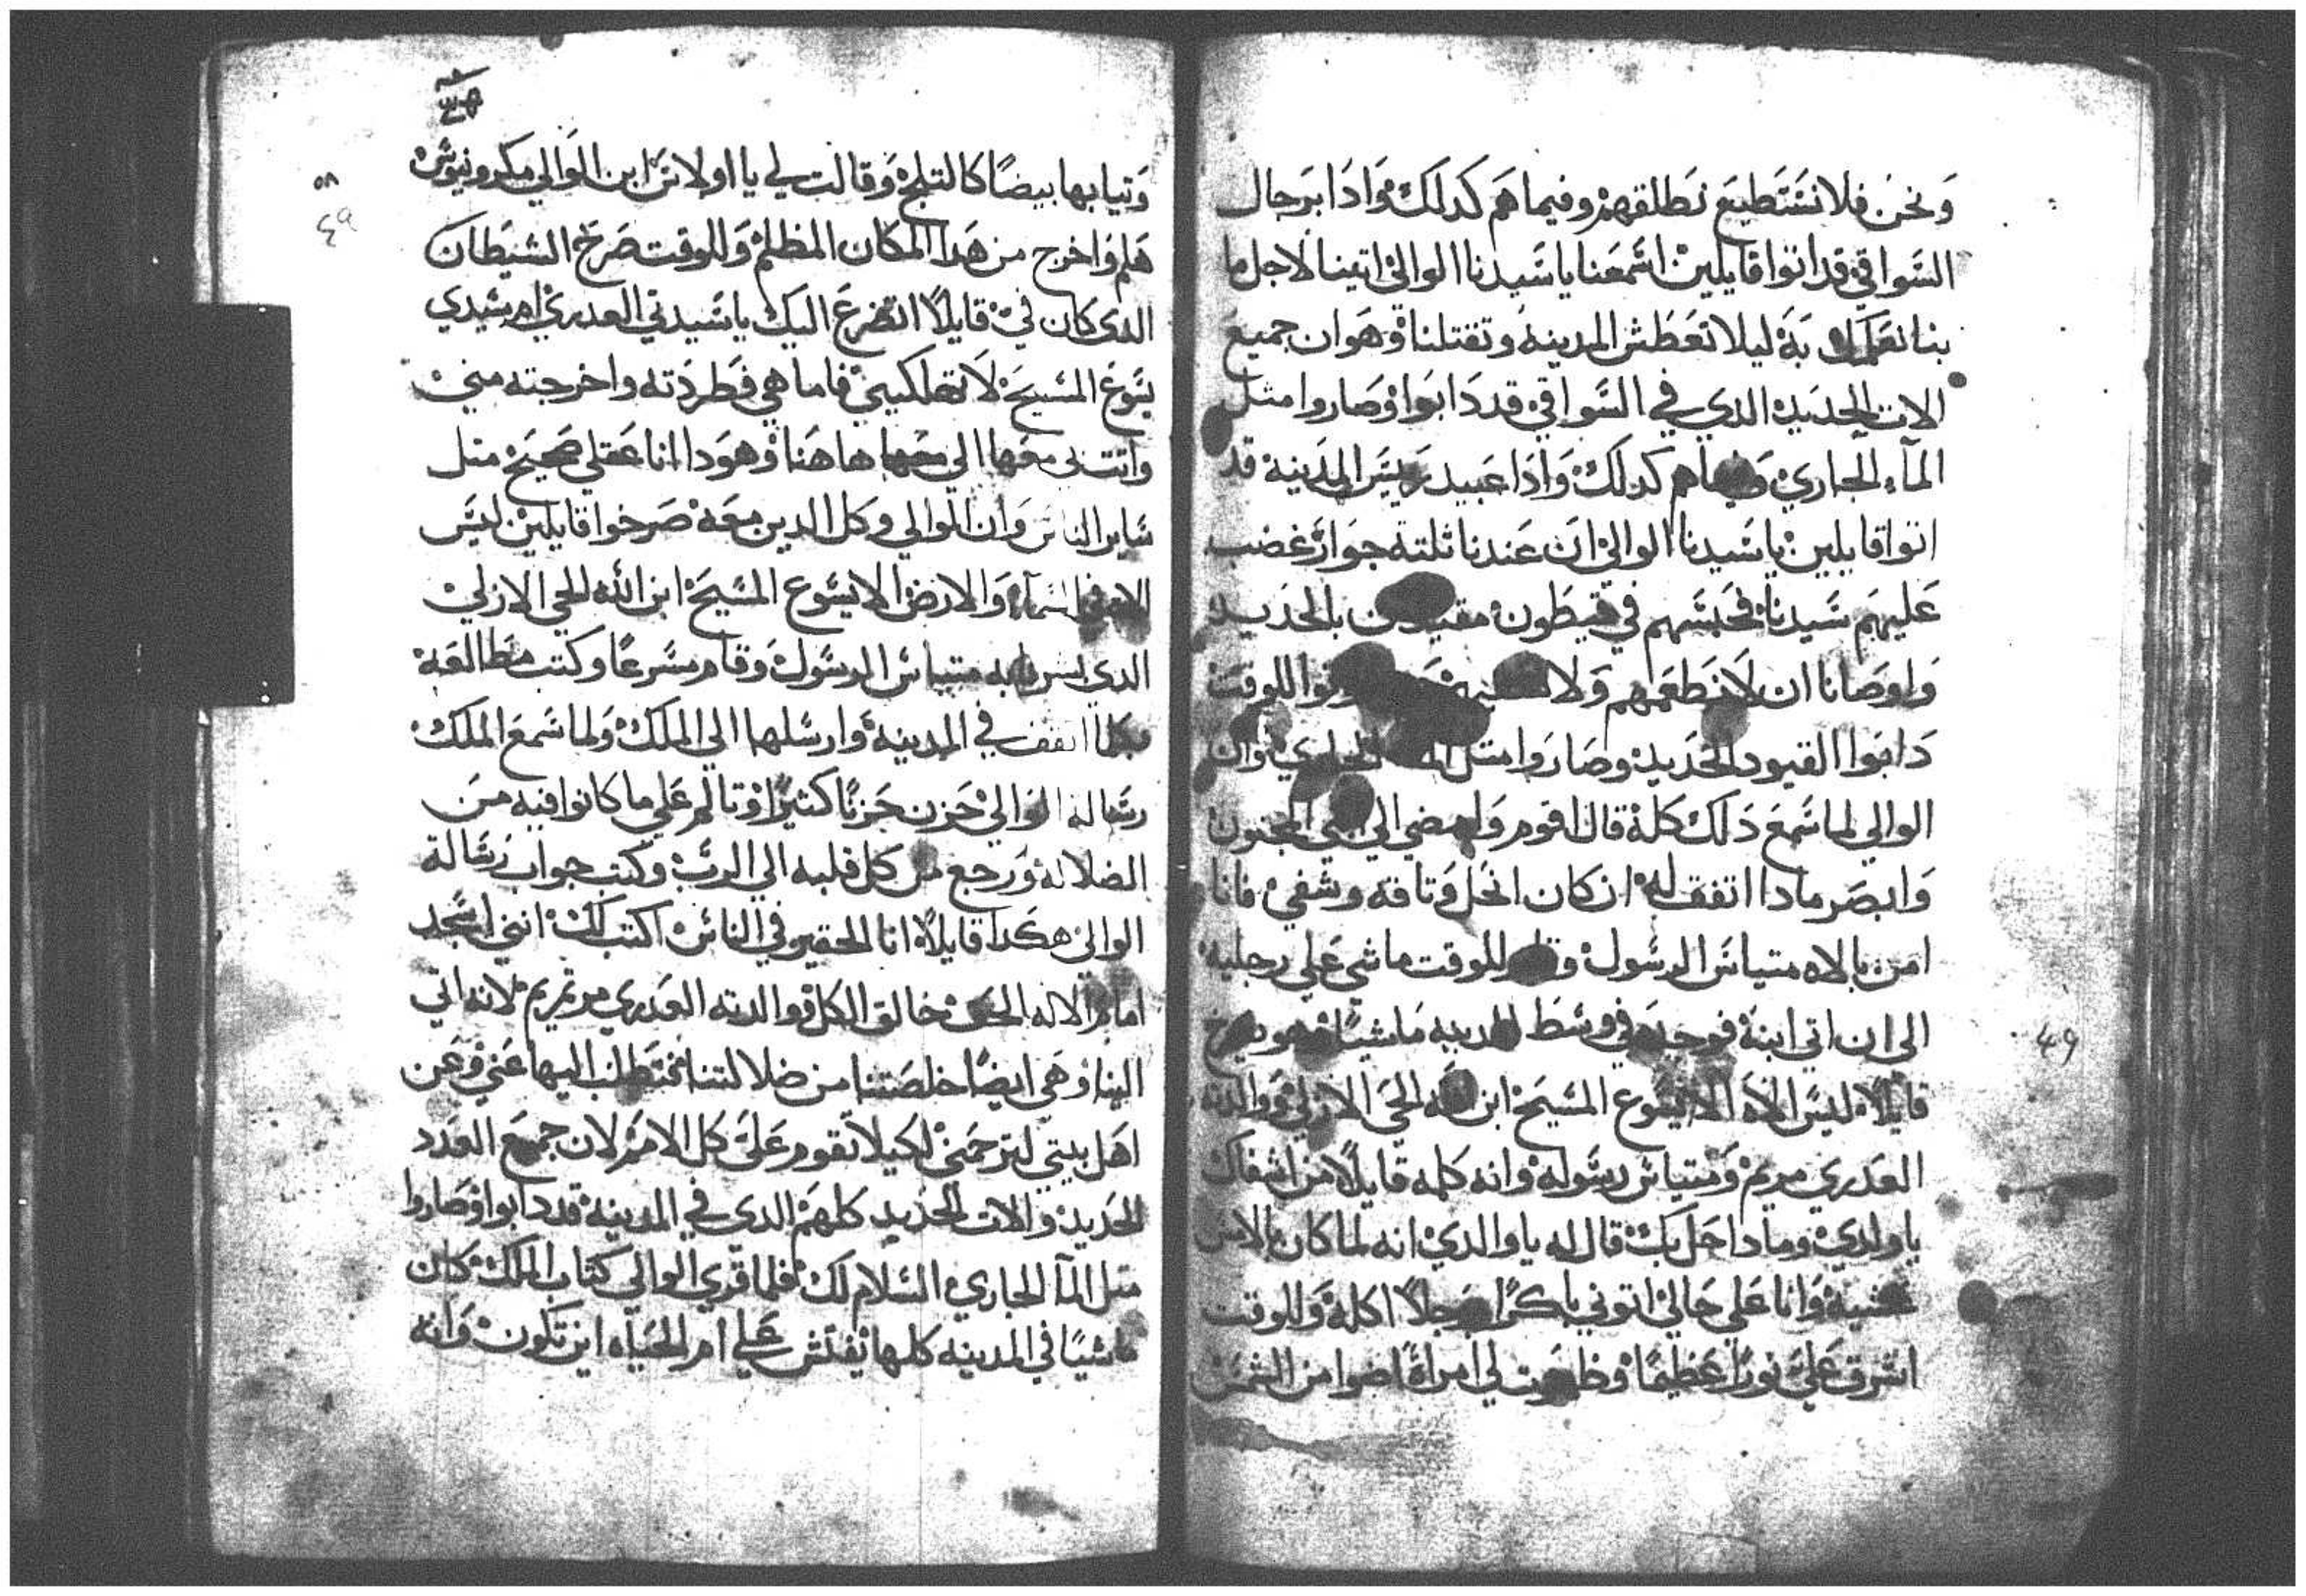 ونحن فلا نستطيع نطلقهم وفيما هم كدلك وادا برجال
السواقي قد اتوا قايلين اسمعنا يا سيدنا الوالي اتينا لاجل ما
بنا نعمله به ليلا تعطش المدينه وتقتلنا وهوان جميع
الات الحديد الدي في السواقي قد دابوا وصاروا مثل
المآء الجاري هم كدلك وادا عبيد رييس المدينة قد
اتوا قايلين يا سيدنا الوالي ان عندنا ثلته جوار غضب
عليهم سيدنا فحبسهم في قيطون بالحديد
واوصانا ان لا نطعمهم ولا للوقت
دابوا القيود الحديد وصاروا متل الجاري وان
الوالي لما سمع دلك كله قال اقوم وامضي الي المجنون
وابصر مادا اتفق له ان كان انحل وتاقه وشفي فانا
امن بالاه متياس الرسول وقام للوقت ماشي علي رجليه
الي ان اتي ابنه فوجده في وسط المدينه ماشيًا
قايلاً ليس الاه الا يسوع المسيح ابن الله الحي الازلي ووالدته
العدري مريم ومتياس رسوله وانه كلمه قايلاً من اشفاك
يا ولدي ومادا حل بك قال له يا والدي انه لما كان بالامس
عشية وانا علي حالي اتوني باكرًا رجلاً اكله وللوقت
اشرق علي نورًا عظيمًا وظهرت لي امراة اضوا من الشمس
٤٩
٥٨
٤٩
وتيابها بيضًا كالتلج وقالت لي يا اولاس ابن الوالي مكرونيوس
هلم واخرج من هدا المكان المظلم وللوقت صرخ الشيطان
الدي كان في قايلاً اتضرع اليك يا سيدتي العدري ام سيدي
يسوع المسيح لا تهلكيني فاما هي فطردته واخرجته مني
واتت بي معها الي ها هنا وهودا انا عقلي صحيح متل
ساير الناس وان الوالي وكل الدين معه صرخوا قايلين ليس
الاه في السمآء والارض الا يسوع المسيح ابن الله الحي الازلي
الدي بشرنا به متياس الرسول وقام مسرعًا وكتب مطالعة
بكلما اتفق في المدينة وارسلها الي الملك ولما سمع الملك
رسالة الوالي حزن حزنًا كثيرًا وتالم علي ما كانوا فيه من
الضلالة ورجع من كل قلبه الي الرب وكتب جواب رسالة
الوالي هكدا قايلاً انا الحقير في الناس اكتب لك انني اسجد
امام الاله الحق خالق الكل ووالدته العدري مرتمريم لانه اتي
الينا وهي ايضًا خلصتنا من ضلالتنا فتطلب اليها عني وعن
اهل بيتي لترحمني لكيلا تقوم علي كل الامم لان جميع العدد
الحديد والات الحديد كلهم الدي في المدينة قد دابوا وصاروا
متل المآ الجاري السلام لك فلما قري الوالي كتاب الملك كان
ماشيًا في المدينه كلها يفتش علي ام الحياه اين تكون وانه